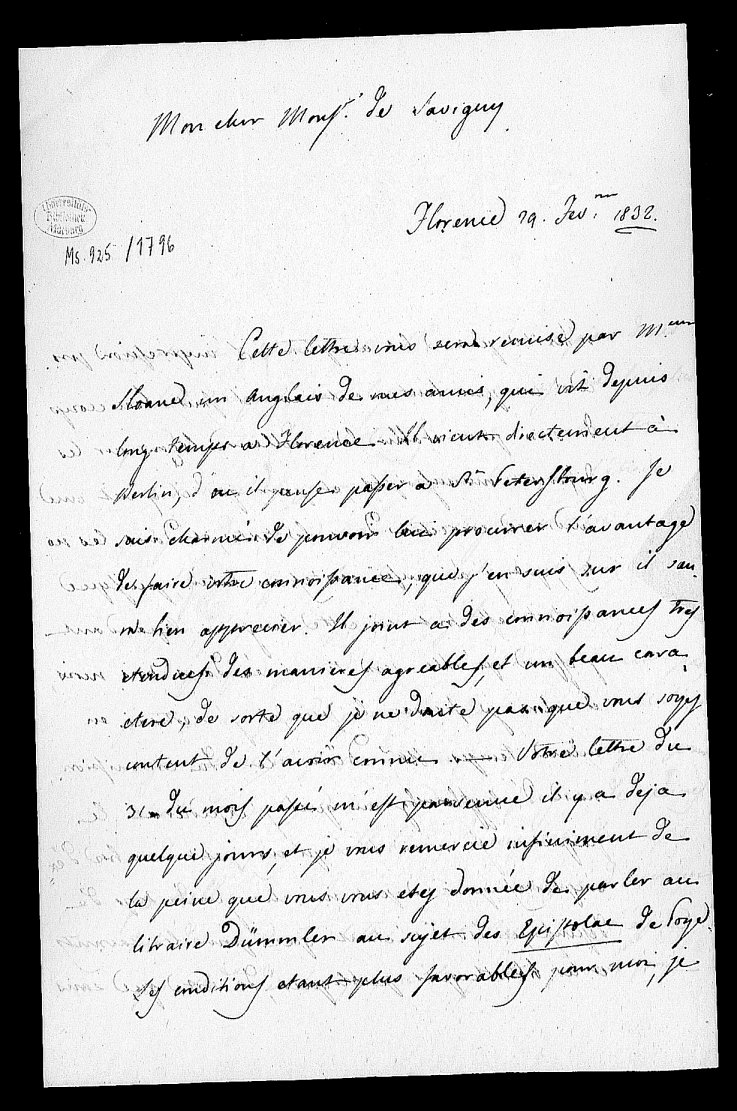 Mon cher Monsr. de Savigny
Florence 29. Fevr. 1832.
Universitäts-
Bibliothek
Marburg
Ms. 925/1796
Cette lettre vous sera remise par Mr
Sloane un Anglais de mes amis, qui vit depuis
long temps a Florence. Il vient directement à
Berlin, d'ou il pense passer a St Petersbourg. Je
suis charmé de pouvoir lui procurer l'avantage
de faire votre connoissance, que j'en suis sur il sau-
ra bien apprecier. Il joint a des connoissances tres
etendues des manieres agreables, et un beau cara-
ctere, de sorte que je ne doute pas que vous soyes
content de l'avoir connu — Votre lettre du
31 du mois passé m'est parvenue il y a deja
quelque jours, et je vous remercie infiniment de
la peine que vous vous etes donnée de parler au
libraire Dümmler au sujet des Epistolae de Poge.
Ses conditions etant plus favorables pour moi, je